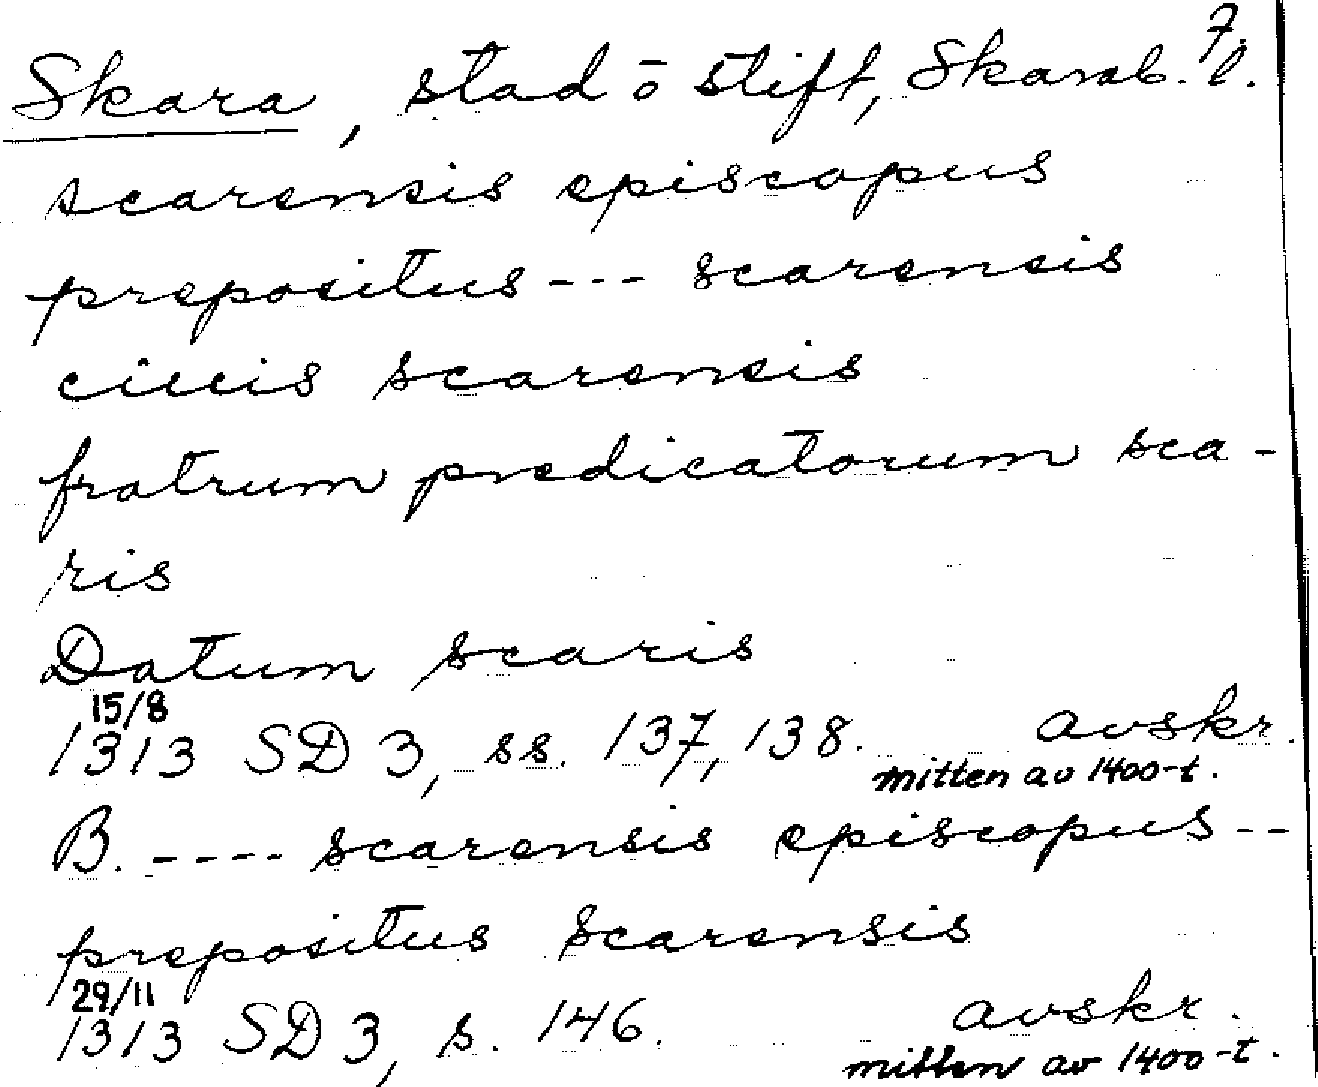 7.
Skara, stad o stift, Skarab. l.
scarensis episcopus
prepositus --- scarensis
ciuis scarensis
fratrum predicatorum sca-
ris
Datum scaris
15/8
1313 SD 3, ss. 137, 138. avskr.
mitten av 1400-t.
B. ---- scarensis episcopus --
prepositus scarensis
29/11
1313 SD 3, s. 146. avskr.
mitten av 1400-t.